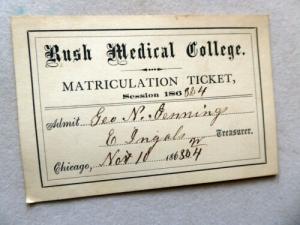 Rush Medical College.
MATRICULATION TICKET,
Session 186 3&4
Admit Geo N. Jennings
E Ingals Treasurer.
Chicago, Nov 10 1863